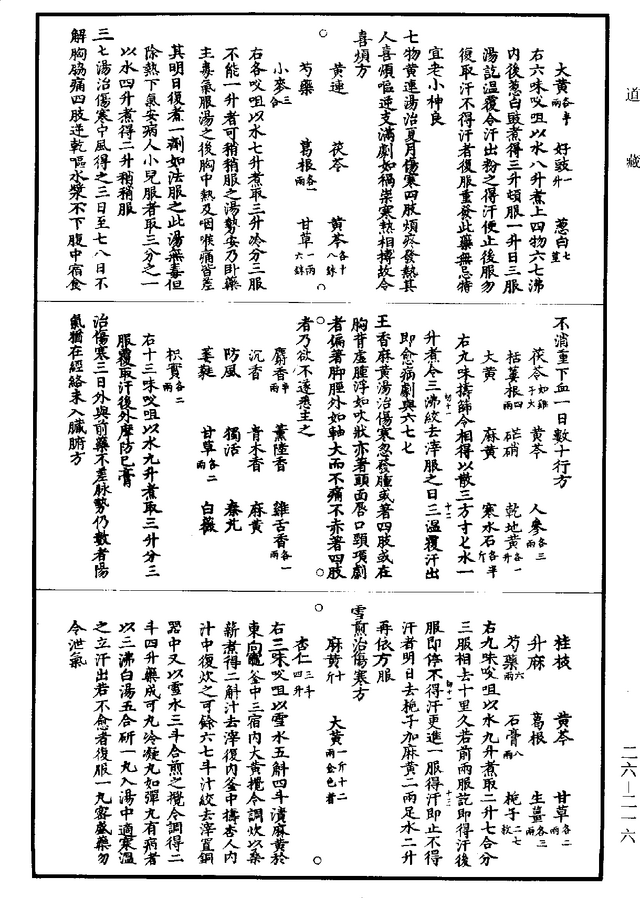 道藏
大黃各半斤 好豉一升 蔥白七莖
右六味㕮咀以水八升煮上四物六七沸
內後蔥白豉煮得三升頓服一升日三服
湯訖溫覆令汗出粉之得汗便止後服勿
復取汗不得汗者復服重發此藥無忌特
宜老小神良
七物黃連湯治夏月傷寒四肢煩疼發熱其
人喜煩嘔逆支滿劇如禍祟寒熱相搏故令
喜煩方
黃連 茯苓 黃芩各十八銖
芍藥 葛根各一兩 甘草一兩六銖
小麥三合
右各㕮咀以水七升煮取三升冷分三服
不能一升者可稍稍服之湯勢安乃卧藥
主毒氣服湯之後胸中熱及咽喉痛皆差
其明日復煮一劑如法服之此湯無毒但
除熱下氣安病人小兒服者取三分之一
以水四升煮得二升稍稍服
三七湯治傷寒中風得之三日至七八日不
解胸脇痛四肢逆乾嘔水漿不下腹中宿食
不消重下血一日數十行方
茯苓如雞子大 黃芩 人參各三兩
栝蔞根四兩 芒硝 乾地黃各一升
大黃 麻黃 寒水石各半斤
右九味擣篩令相得以散三方寸匕水一
升煮令三沸絞去滓服之日三溫覆汗出
即愈病劇與六七匕
五香麻黃湯治傷寒忽發腫或著四肢或在
胸背虛腫浮如吹狀亦著頭面唇口頸項劇
者偏著腳脛外如軸大而不痛不赤著四肢
者乃欲不遂悉主之
麝香半兩 薰陸香 雞舌香各一兩
沉香 青木香 麻黃
防風 獨活 秦艽
萎蕤 甘草各二兩 白薇
枳實各二兩
右十三味㕮咀以水九升煮取三升分三
服覆取汗後外摩防己膏
治傷寒三日外與前藥不差脉勢仍數者陽
氣猶在經絡未入臟腑方
桂枝 黃芩 甘草各二兩
升麻 葛根 生薑各三兩
芍藥六兩 石膏八兩 梔子二七枚
右九味㕮咀以水九升煮取二升七合分
三服相去十里久若前兩服訖即得汗後
服即停不得汗更進一服得汗即止不得
汗者明日去梔子加麻黃二兩足水二升
再依方服
雪煎治傷寒方
麻黃十斤 大黃一斤十二兩金色者
杏仁三斗四升
右三味㕮咀以雪水五斛四斗漬麻黃於
東向竈釜中三宿內大黃攪令調炊以桑
薪煮得二斛汁去滓復內釜中擣杏人內
汁中復炊之可餘六七斗汁絞去滓置銅
器中又以雪水三斗合煎之攪令調得二
斗四升藥成可丸冷凝丸如彈丸有病者
以三沸白湯五合研一丸入湯中適寒溫
之立汗出若不愈者復服一丸密盛藥勿
令泄氣
二六—二一六